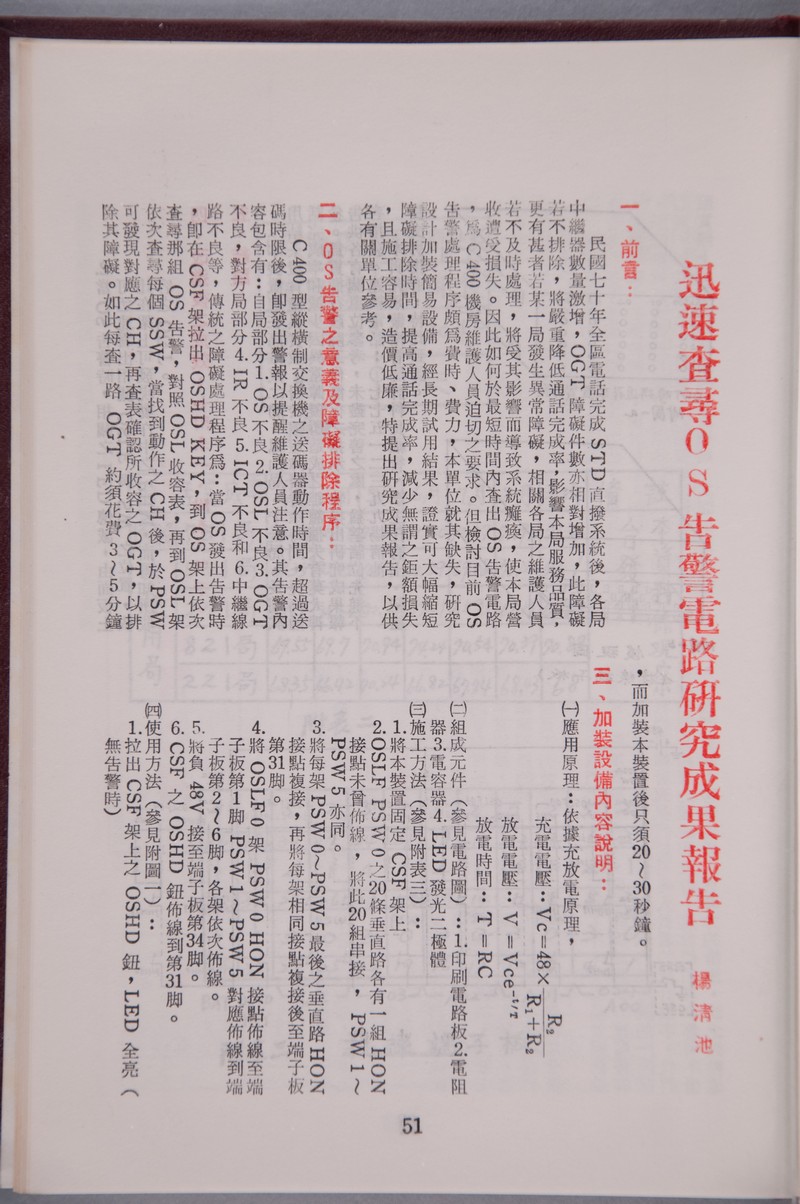 迅速查尋OS告警電路研究成果報告
楊清池
一、前言：
民國七十年全區電話完成STD直撥系統後，各局
中繼器數量激增，OGT障礙件數亦相對增加，此障礙
若不排除，將嚴重降低通話完成率，影響本局服務品質，
更有甚者若某一局發生異常障礙，相關各局之維護人員
若不及時處理，將受其影響而導致系統癱瘓，使本局營
收遭受損失。因此如何於最短時間內查出OS告警電路
，爲C400機房維護人員迫切之要求。但檢討目前OS
告警處理程序頗爲費時、費力，本單位就其缺失，研究
設計加裝簡易設備，經長期試用結果，證實可大幅縮短
障礙排除時間，提高通話完成率，減少無謂之鉅額損失
，且施工容易，造價低廉，特提出研究成果報告，以供
各有關單位參考。
二、OS告警之意義及障礙排除程序：
C400型縱橫制交換機之送碼器動作時間，超過送
碼時限後，卽發出警報以提醒維護人員注意。其告警內
容包含有：自局部分1.OS不良2.OSL不良3.OGT
不良，對方局部分4.IR不良5.ICT不良和6.中繼線
路不良等，傳統之障礙處理程序爲：當OS發出告警時
，卽在CSF架拉出OSHD KEY，到OS架上依次
查尋那組OS告警，對照OSL收容表，再到OSL架
依次查尋每個SSW，當找到動作之CH後，於PSW
可發現對應之CH，再查表確認所收容之OGT，以排
除其障礙。如此每查一路OGT約須花費3～5分鐘
，而加裝本裝置後只須20～30秒鐘。
三、加裝設備內容說明：
㈠應用原理：依據充放電原理，
充電電壓：Vc=48×R₂/(R₁+R₂)
放電電壓：V=Vce⁻ᵗ/ᵀ
放電時間：T=RC
㈡組成元件（參見電路圖）：1.印刷電路板2.電阻
器3.電容器4.LED發光二極體
㈢施工方法（參見附表三）：
1.將本裝置固定CSF架上
2.OSLF PSW0之20條垂直路各有一組HON
接點未曾佈線，將此20組串接，PSW1～
PSW5亦同。
3.將每架PSW0～PSW5最後之垂直路HON
接點複接，再將每架相同接點複接後至端子板
第31脚。
4.將OSLF0架PSW0 HON接點佈線至端
子板第1脚PSW1～PSW5對應佈線到端
子板第2～6脚，各架依次佈線。
5.將負48V接至端子板第34脚。
6.CSF之OSHD鈕佈線到第31脚。
㈣使用方法（參見附圖一）：
1.拉出CSF架上之OSHD鈕，LED全亮（
無告警時）
51